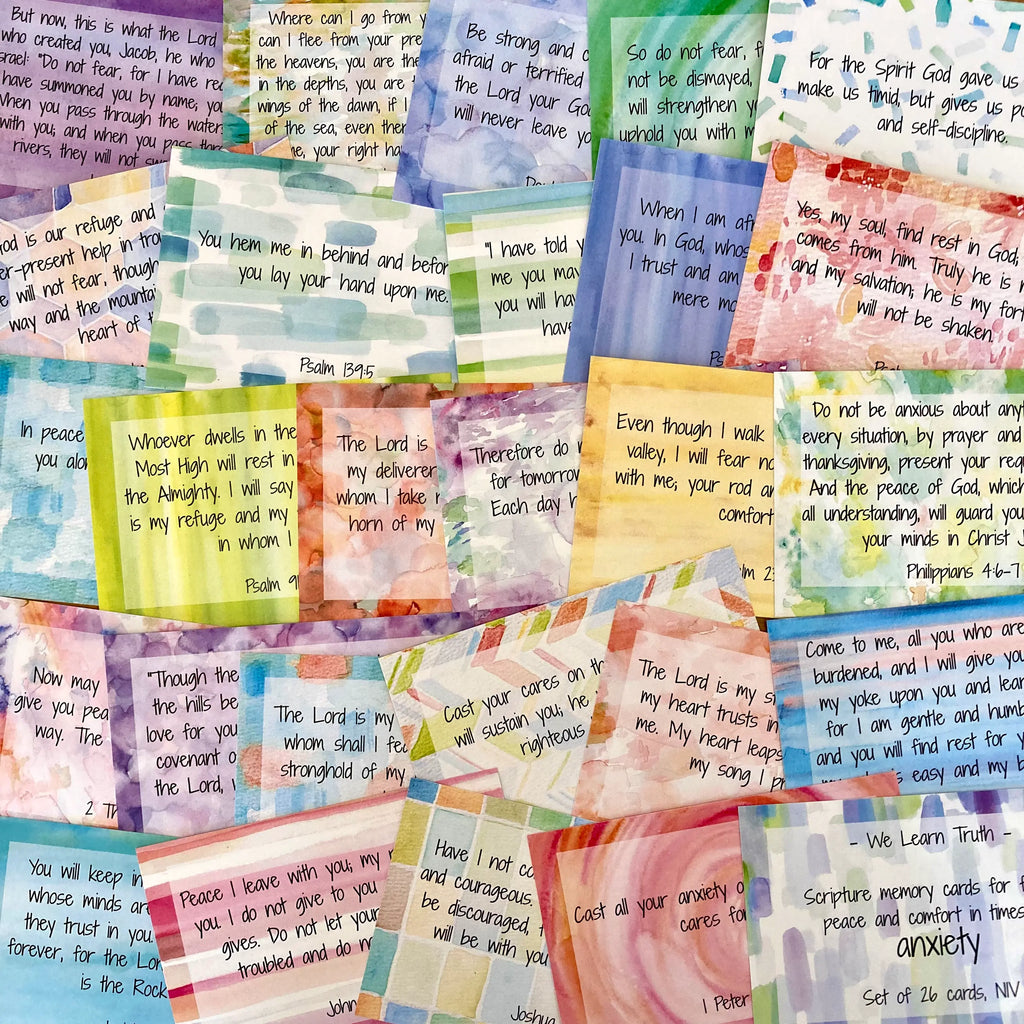 But now, this is what the Lord
who created you, Jacob, he who
srael: "Do not fear, for I have
have summoned you by name; you
When you pass through the water
with you; and when you pass
rivers, they will not
Where can I go from
can I flee from your
the heavens, you are
in the depths, you are
wings of the dawn, if I
of the sea, even
your right
Be strong and
afraid or terrified
the Lord your
will never leave
So do not fear,
not be dismayed,
will strengthen
uphold you with
For the Spirit God gave us
make us timid, but gives us
and self-discipline.
God is our refuge and
er-present help in
we will not fear, though
way and the
heart of
You hem me in behind and
you lay your hand upon me.
Psalm 139:5
"I have told
me you may
you will
When I am
you. In God,
I trust and am
mere
Yes, my soul, find rest in God;
comes from him. Truly he is
and my salvation; he is my
will not be shaken.
In peace
you
Whoever dwells in the
Most High will rest in
the Almighty. I will say
is my refuge and my
in whom I
Psalm
The Lord is
my deliverer
whom I take
horn of my
Therefore do
for tomorrow
Each day
Even though I walk
valley, I will fear
with me; your rod
comfort
Do not be anxious about
every situation, by prayer and
thanksgiving, present your
And the peace of God, which
all understanding, will guard
your minds in Christ
Philippians 4:6-7
Now may
give you
way. The
2
"Though the
the hills be
love for you
covenant
the Lord,
The Lord is my
whom shall I
stronghold of my
Cast your cares on
will sustain you; he
righteous
The Lord is my
my heart trusts in
me. My heart leaps
my song I
Come to me, all you who are
burdened, and I will give you
my yoke upon you and
for I am gentle and
and you will find rest for
easy and my
You will keep in
whose minds
they trust in you.
forever, for the
is the Rock
Peace I leave with you; my
you. I do not give to you
gives. Do not let your
troubled and do
John
Have I not
and courageous.
be discouraged,
will be with you
Joshua
Cast all your anxiety
cares
1 Peter
- We Learn Truth -
Scripture memory cards for
peace and comfort in times
anxiety
Set of 26 cards, NIV